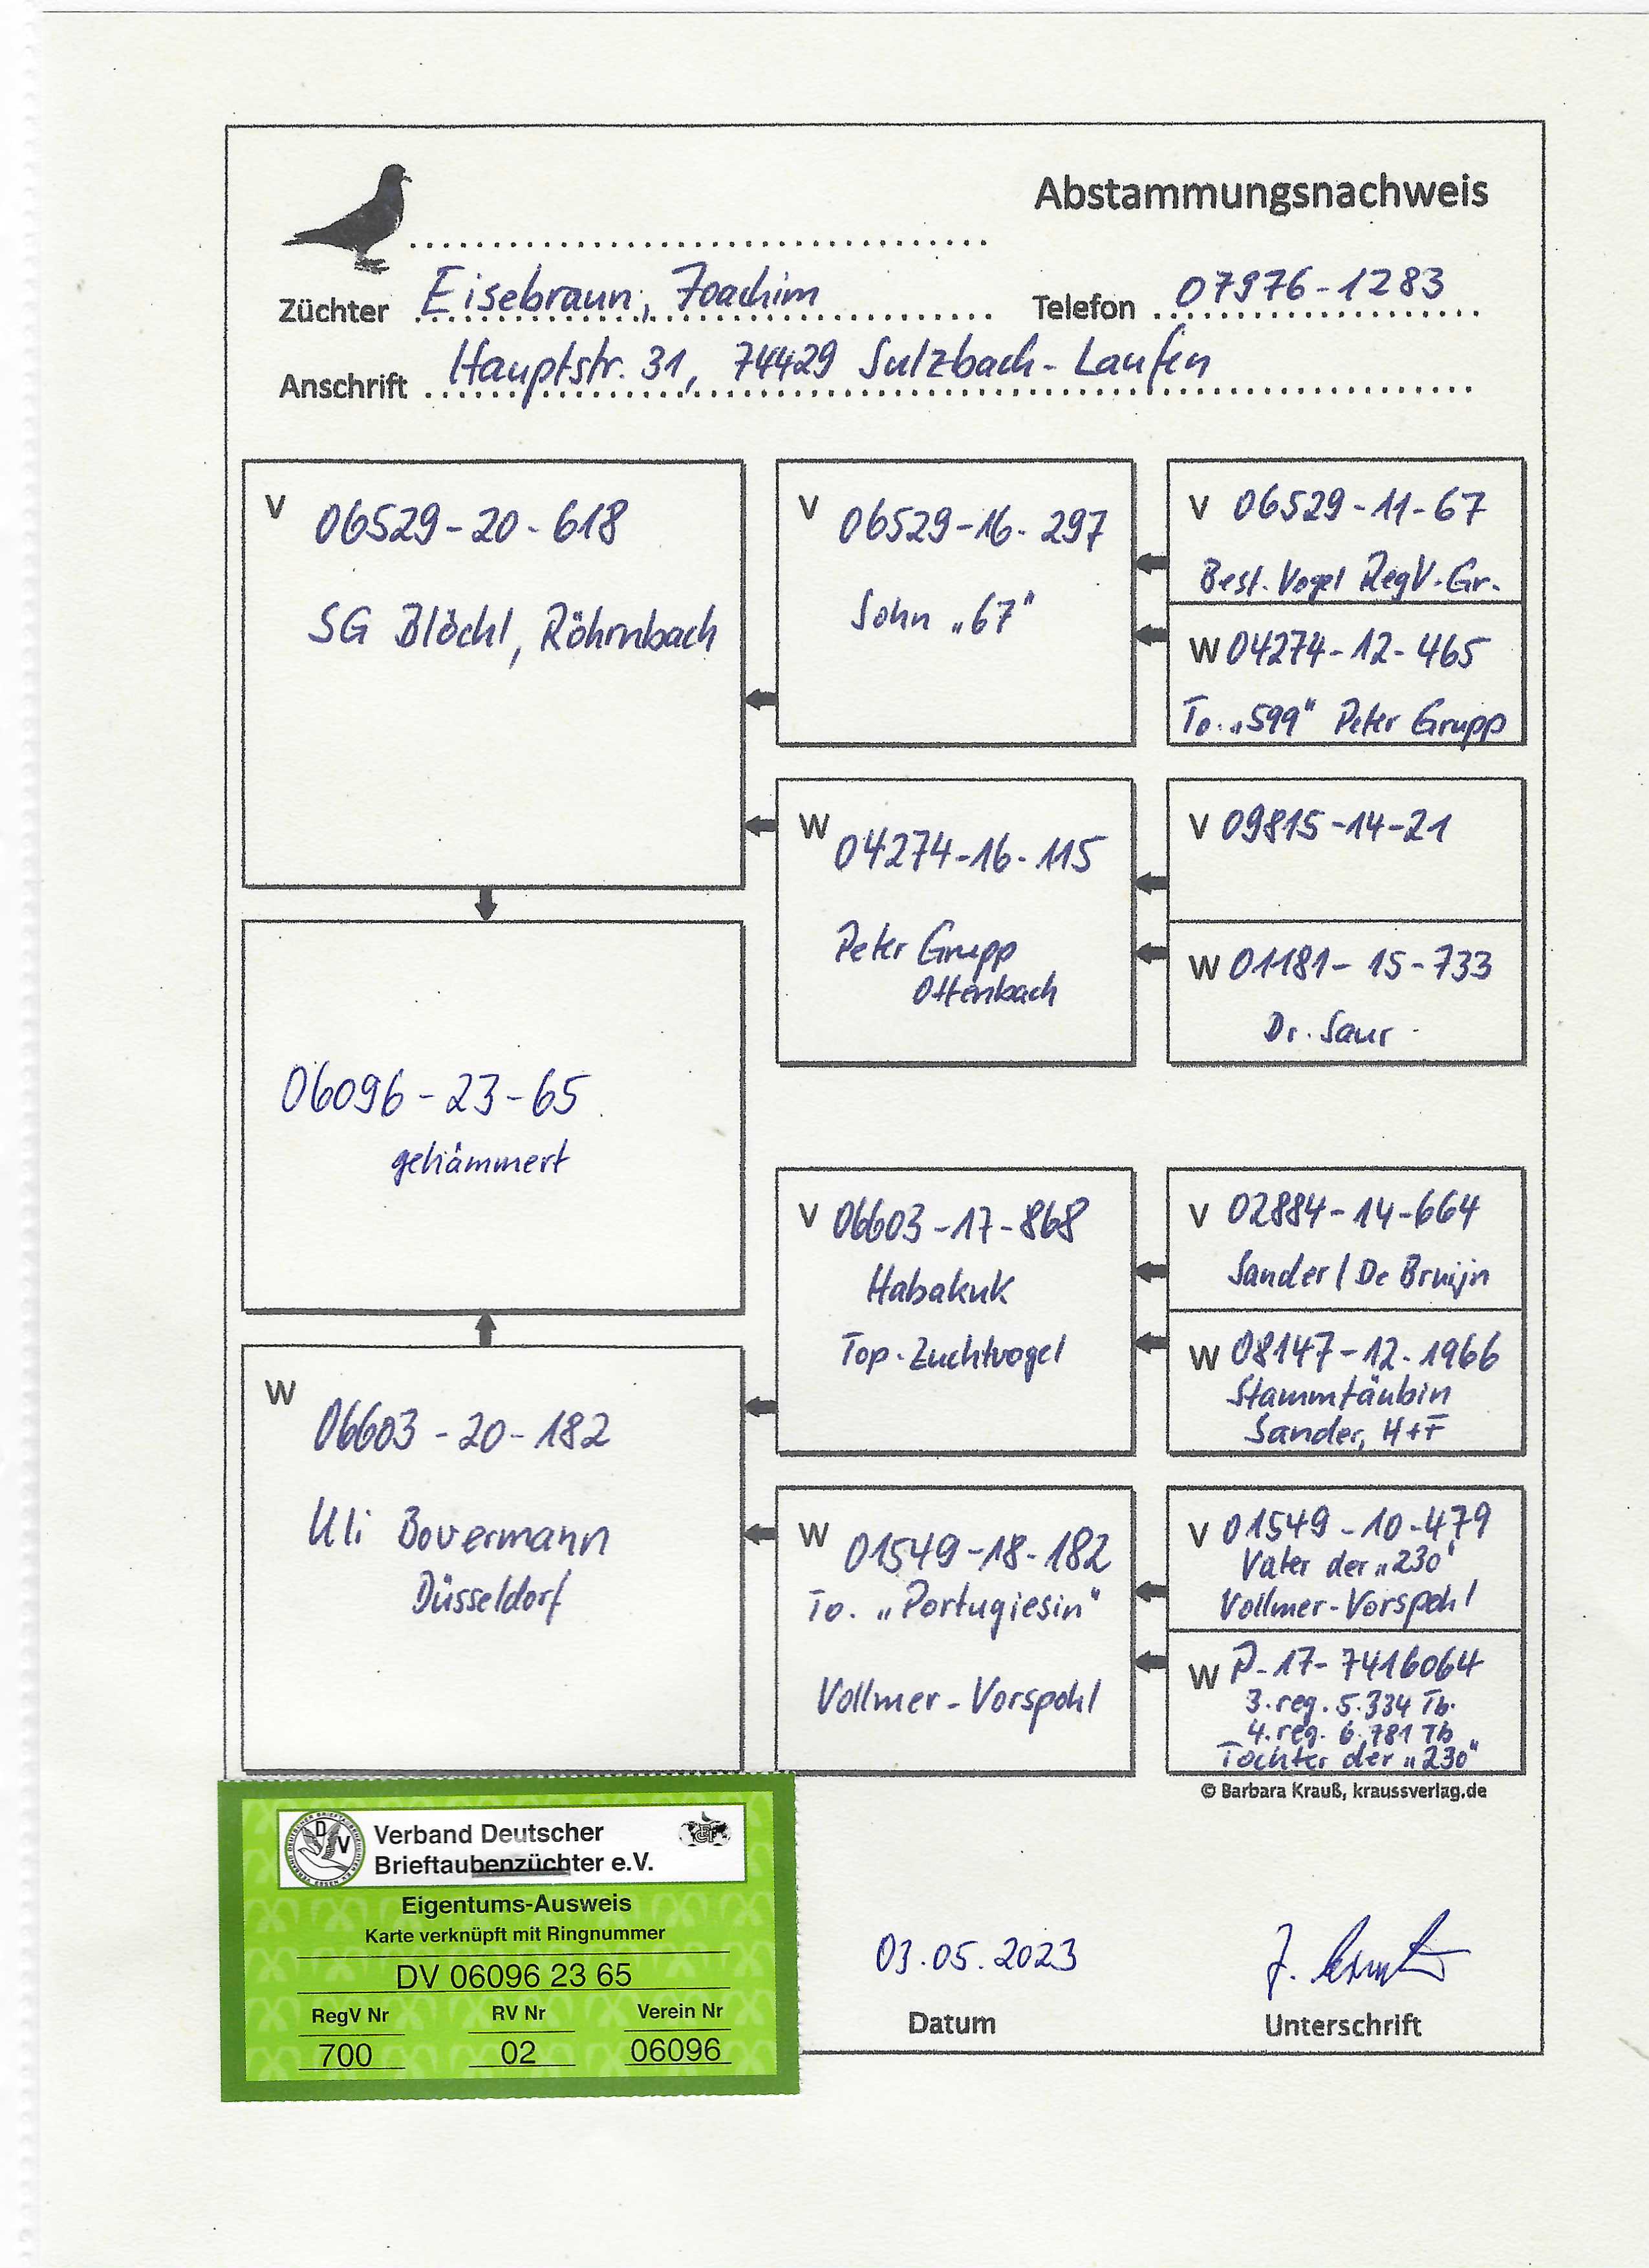 Abstammungsnachweis
Züchter Eisebraun, Joachim
Telefon 07976-1283
Anschrift Hauptstr. 31, 74429 Sulzbach-Laufen
V 06529-20-618
SG Blöchl, Röhrnbach
V 06529-16-297
Sohn „67"
V 06529-11-67
Best. Vogel RegV.-Gr.
W 04274-12-465
To. „599" Peter Grupp
W 04274-16-115
Peter Grupp
Ottenbach
V 09815-14-21
W 01181-15-733
Dr. Saur
06096-23-65
gehämmert
V 06603-17-868
Habakuk
Top-Zuchtvogel
V 02884-14-664
Sander / De Bruijn
W 08147-12-1966
Stammtäubin
Sander, H+F
W 06603-20-182
Uli Bovermann
Düsseldorf
W 01549-18-182
To. „Portugiesin"
Vollmer-Vorspohl
V 01549-10-479
Vater der „230"
Vollmer-Vorspohl
W P-17-7416064
3. reg. 5.334 Tb.
4. reg. 6.781 Tb
Tochter der „230"
© Barbara Krauß, kraussverlag.de
Verband Deutscher
Brieftaubenzüchter e.V.
Eigentums-Ausweis
Karte verknüpft mit Ringnummer
DV 06096 23 65
RegV Nr RV Nr Verein Nr
700 02 06096
03.05.2023
Datum
Unterschrift